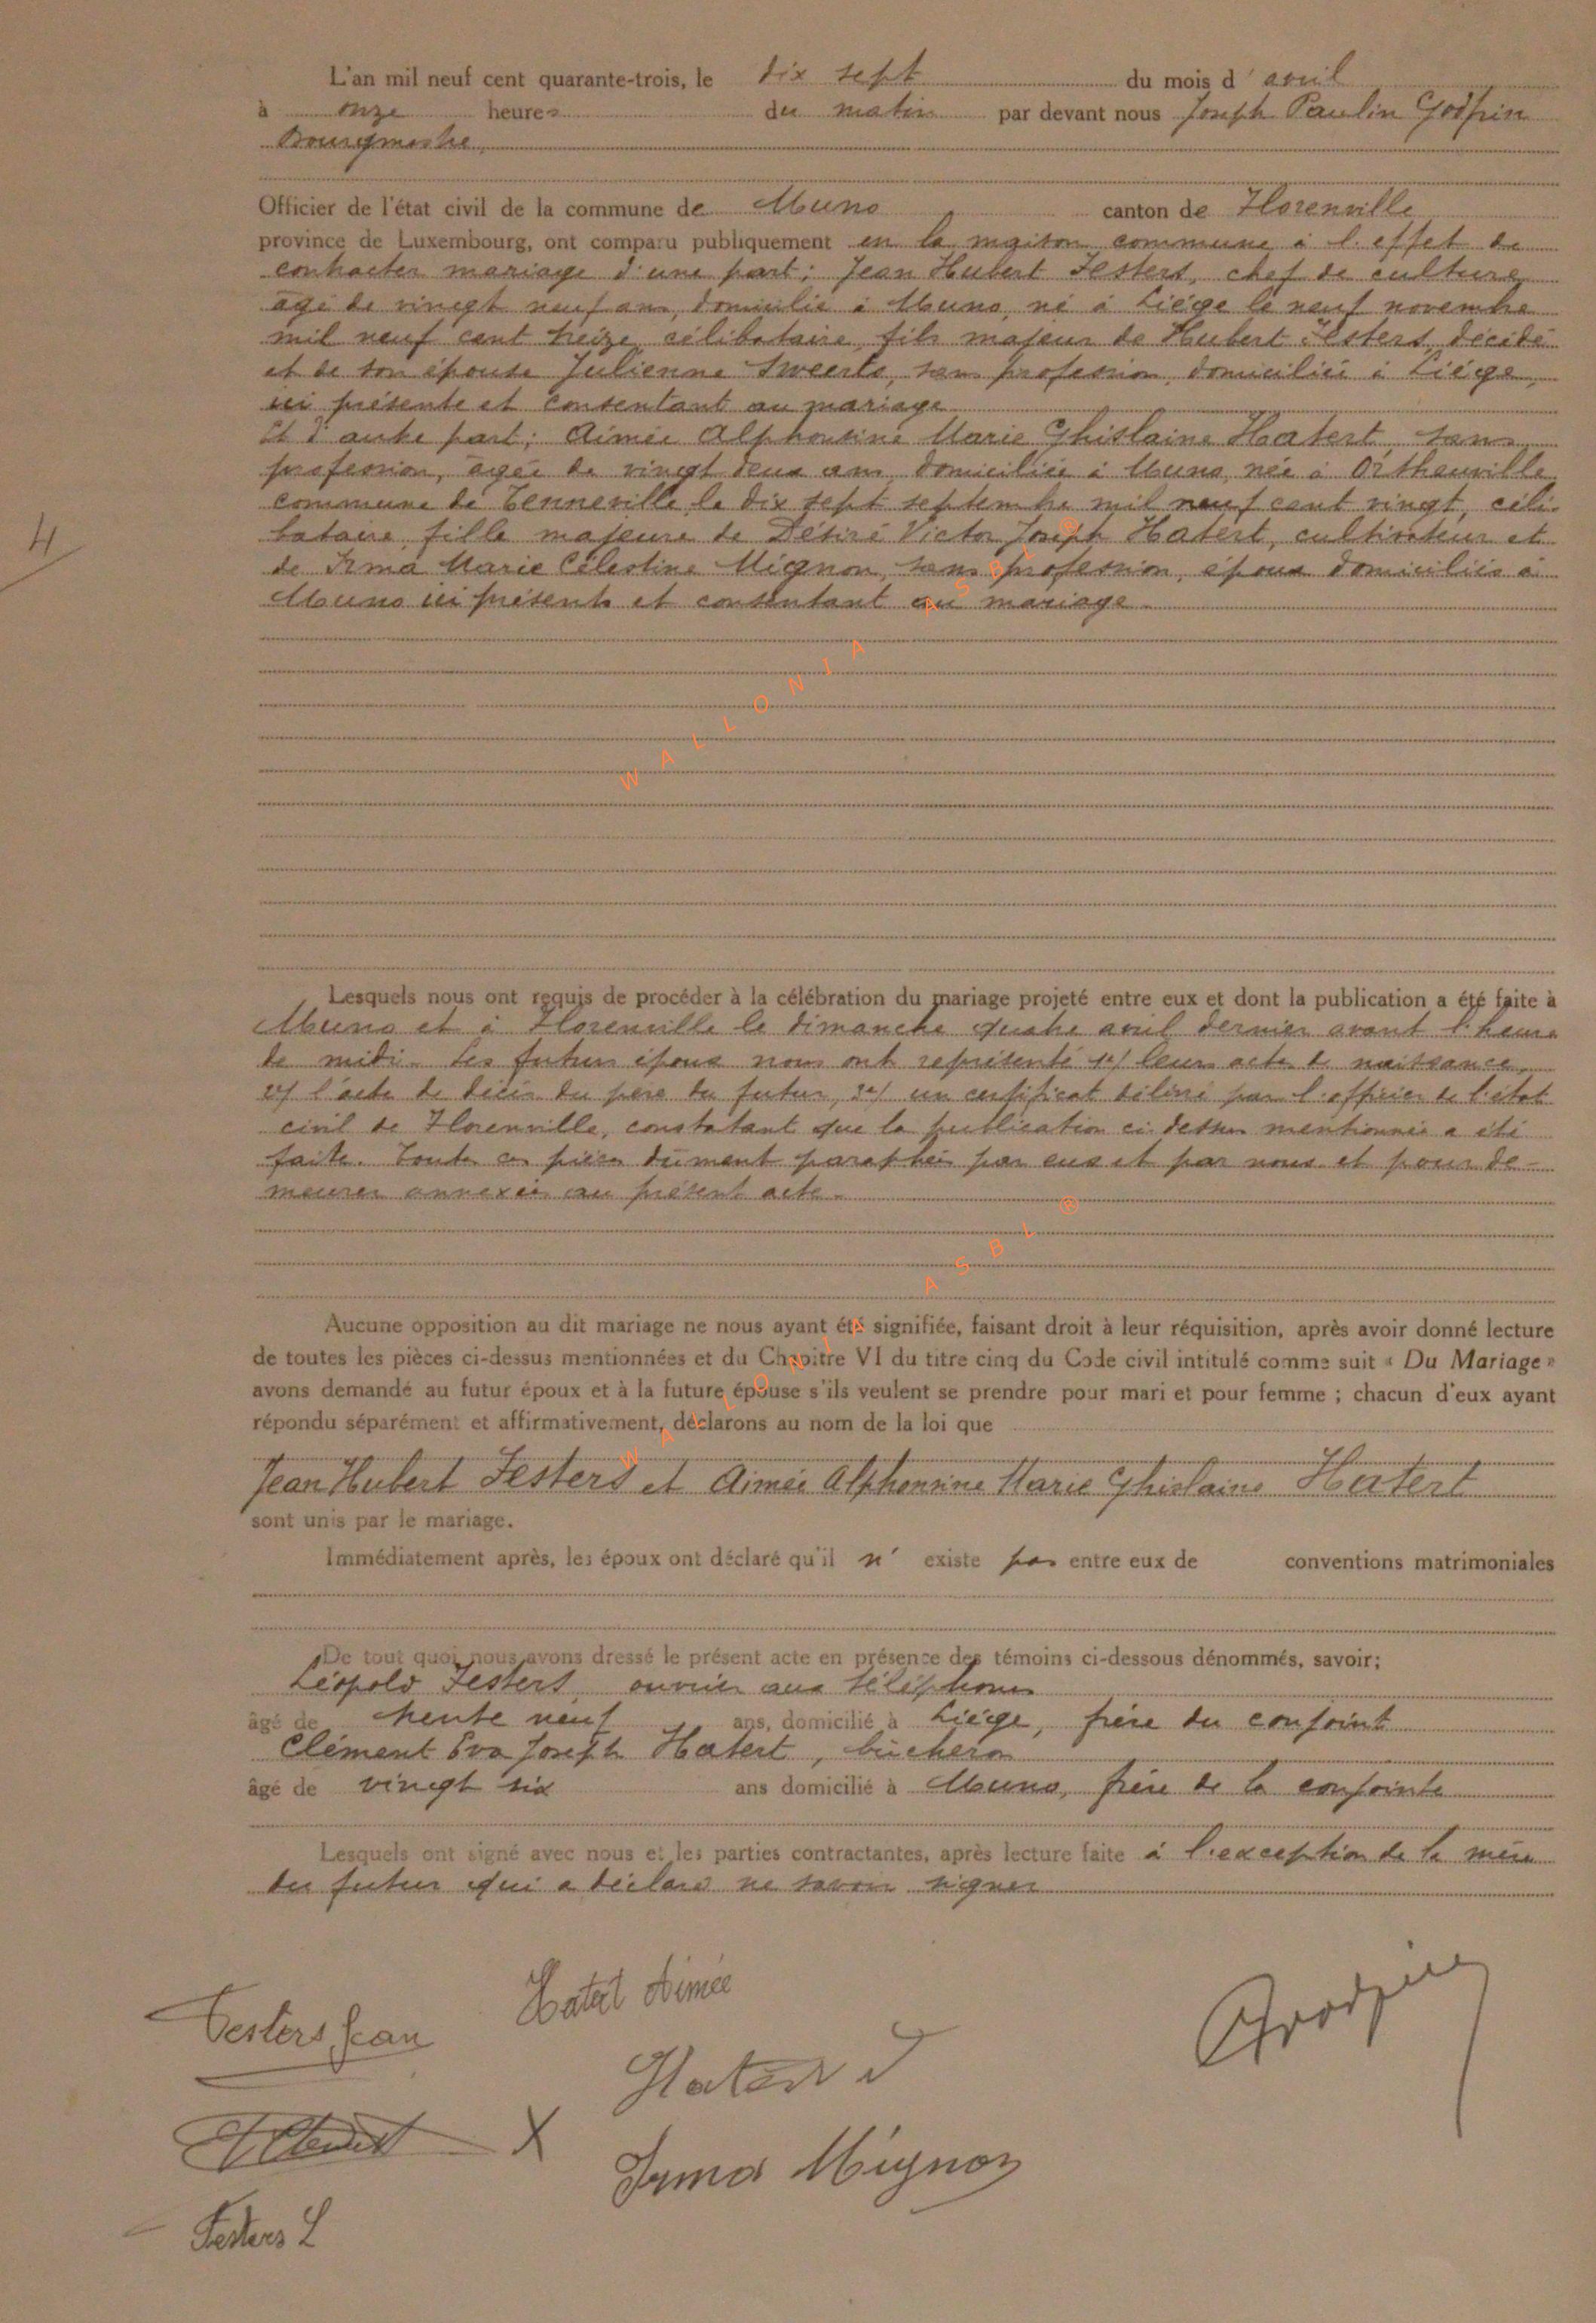 L'an mil neuf cent quarante-trois, le dix sept du mois d' avril
à onze heures du matin par devant nous Joseph Paulin Godfrin
Bourgmestre,
Officier de l'état civil de la commune de Muno canton de Florenville
province de Luxembourg, ont comparu publiquement en la maison commune à l'effet de
contracter mariage d'une part: Jean Hubert Festers, chef de culture,
âgé de vingt neuf ans, domicilié à Muno, né à Liége le neuf novembre
mil neuf cent treize, célibataire, fils majeur de Hubert Festers, décédé
et de son épouse Julienne Sweerts, sans profession, domiciliée à Liége,
ici présente et consentant au mariage
Et d'autre part: Aimée Alphonsine Marie Ghislaine Hatert, sans
profession, âgée de vingt deux ans, domiciliée à Muno, née à Ortheuville
commune de Tenneville le dix sept septembre mil neuf cent vingt, céli-
bataire, fille majeure de Désiré Victor Joseph Hatert, cultivateur et
de Irma Marie Célestine Mignon, sans profession, époux domiciliés à
Muno ici présents et consentant au mariage.
4
WALLONIA ASBL ®
Lesquels nous ont requis de procéder à la célébration du mariage projeté entre eux et dont la publication a été faite à
Muno et à Florenville le dimanche quatre avril dernier avant l'heure
de midi. Les futurs époux nous ont représenté 1°/ leurs actes de naissance,
2°/ l'acte de décès du père du futur, 3°/ un certificat délivré par l'officier de l'état
civil de Florenville, constatant que la publication ci-dessus mentionnée a été
faite. Toutes ces pièces dûment paraphées par eux et par nous et pour de-
meurer annexées au présent acte.
WALLONIA ASBL ®
Aucune opposition au dit mariage ne nous ayant été signifiée, faisant droit à leur réquisition, après avoir donné lecture
de toutes les pièces ci-dessus mentionnées et du Chapitre VI du titre cinq du Code civil intitulé comme suit « Du Mariage »
avons demandé au futur époux et à la future épouse s'ils veulent se prendre pour mari et pour femme ; chacun d'eux ayant
répondu séparément et affirmativement, déclarons au nom de la loi que
Jean Hubert Festers et Aimée Alphonsine Marie Ghislaine Hatert
sont unis par le mariage.
Immédiatement après, les époux ont déclaré qu'il n' existe pas entre eux de conventions matrimoniales
De tout quoi nous avons dressé le présent acte en présence des témoins ci-dessous dénommés, savoir;
Léopold Festers, ouvrier aux téléphones
âgé de trente neuf ans, domicilié à Liége, frère du conjoint
Clément Eva Joseph Hatert, bûcheron
âgé de vingt six ans domicilié à Muno, frère de la conjointe
Lesquels ont signé avec nous et les parties contractantes, après lecture faite à l'exception de la mère
du futur qui a déclaré ne savoir signer
Hatert Aimée
Festers Jean
Godfrin
Hatert D
X
Irma Mignon
Festers L